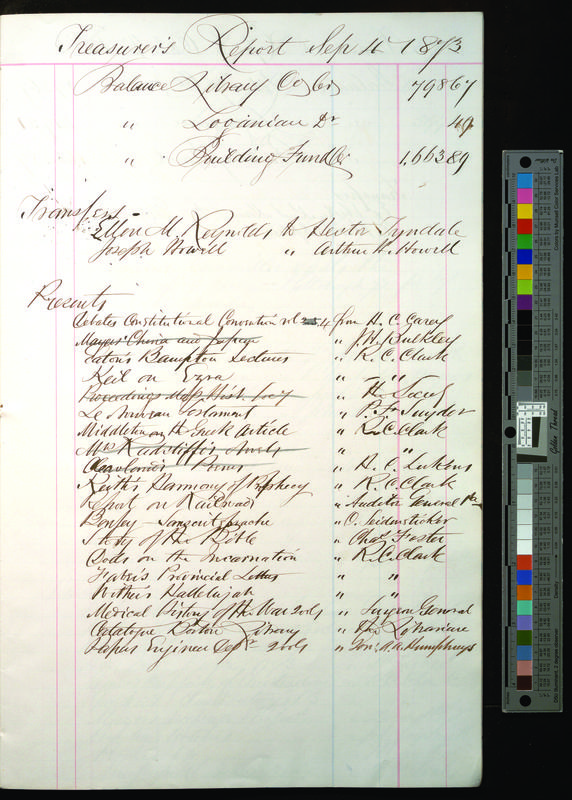 Treasurer's Report Sep 4 1873
Balance Library Co Cr 798 67
" Loganian Dr 49
" Building Fund Cr 1,663 89
Transfers
Ellen M. Reynolds to Hector Tyndale
Joseph Howell " Arthur H. Howell
Presents
Debates Constitutional Convention vol 4 from H. C. Carey
China and Japan " J. H. Bulkley
Eaton's Bampton Lectures " R. C. Clark
Keil on Ezra " "
Proceedings Mass Hist. Socy " H. Socy
Le Nouveau Testament " P. F. Snyder
Middleton on the Greek Article " R. C. Clark
Mrs Radcliffe's Novels " "
Poems " H. C. Lukens
Keith's Harmony of Prophecy " R. C. Clark
Report on Railroads " Auditor General Pa
" O. Seidensticker
Story of the Bible " Chas Foster
on the Incarnation " R. C. Clark
Provincial Letters " "
Wither's Hallelujah " "
Medical History of the War 2 vols " Surgeon General
Catalogue Boston Library " The Librarian
Papers Engineer Dept 2 vols " Gen. A. A. Humphreys